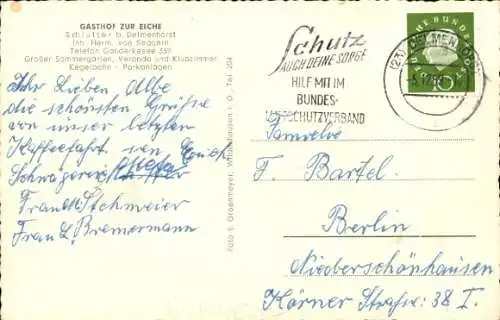 GASTHOF ZUR EICHE
Schlutter b. Delmenhorst
Inh. Herm. von Seggern
Telefon Ganderkesee 559
Großer Sommergarten, Veranda und Klubzimmer
Kegelbahn - Parkanlagen
Ihr Lieben Alle
die schönsten Grüße
von unser letzten
Kaffeefahrt von
Schwägerin
Frau M Stehmeier
Frau L. Bremermann
Foto E. Groenmeyer, Wildeshausen i. O., Tel. 204
Schutz
AUCH DEINE SORGE
HILF MIT IM
BUNDES-
LUFTSCHUTZVERBAND
DELMENHORST
DEUTSCHE BUNDESPOST
10
Familie
F. Bartel.
Berlin
Niederschönhausen
Körner Straße: 38 I.